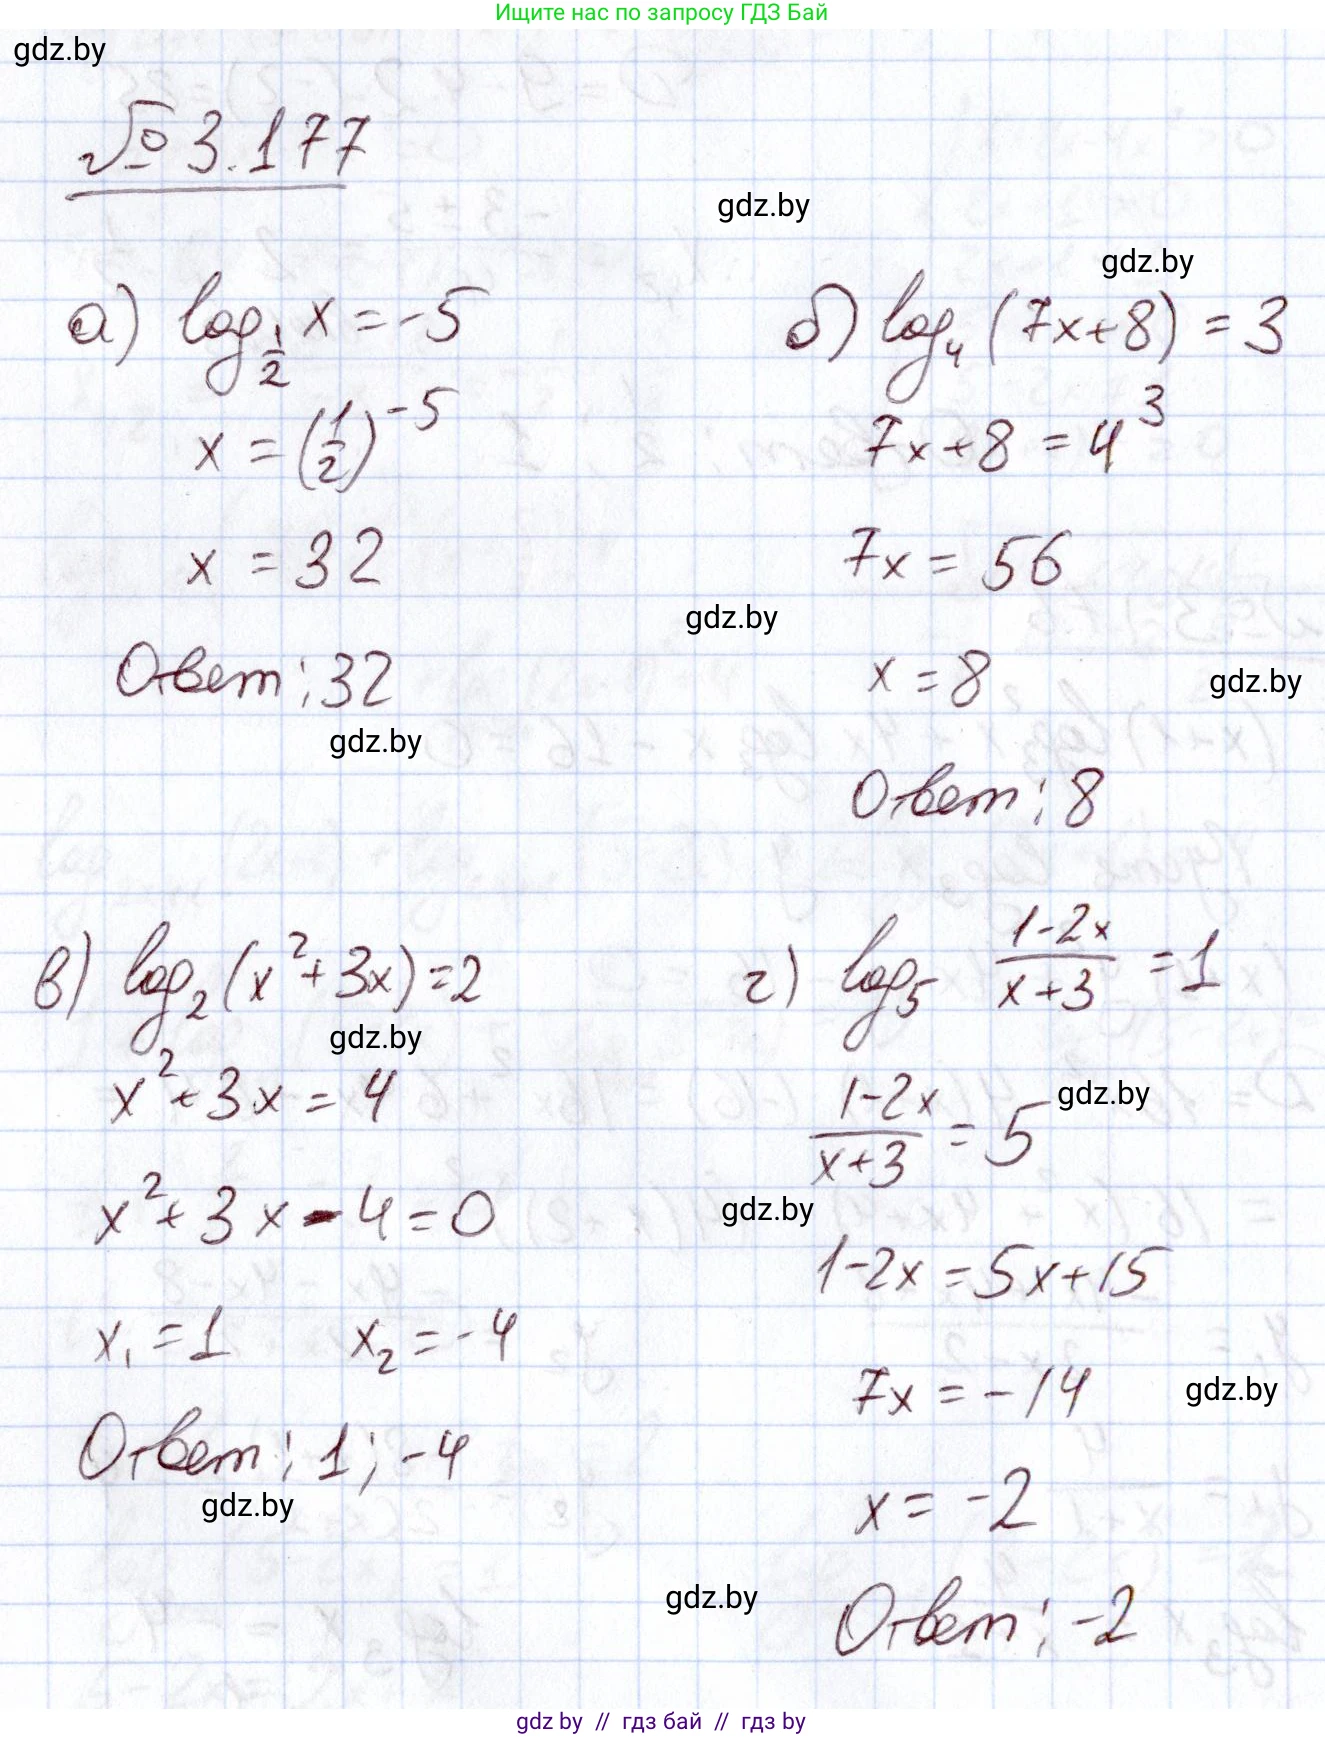 Ищите нас по запросу ГДЗ Бай
gdz.by
№ 3.177
gdz.by
gdz.by
а) log_{1/2} x = -5
x = (1/2)^{-5}
x = 32
Ответ: 32
gdz.by
б) log_4 (7x+8) = 3
7x+8 = 4^3
7x = 56
gdz.by
x = 8
gdz.by
Ответ: 8
в) log_2 (x^2+3x) = 2
gdz.by
x^2+3x = 4
x^2+3x-4=0
x_1 = 1 x_2 = -4
Ответ: 1; -4
gdz.by
г) log_5 (1-2x)/(x+3) = 1
gdz.by
(1-2x)/(x+3) = 5
gdz.by
1-2x = 5x+15
7x = -14
gdz.by
x = -2
gdz.by
Ответ: -2
gdz by // гдз бай // гдз by